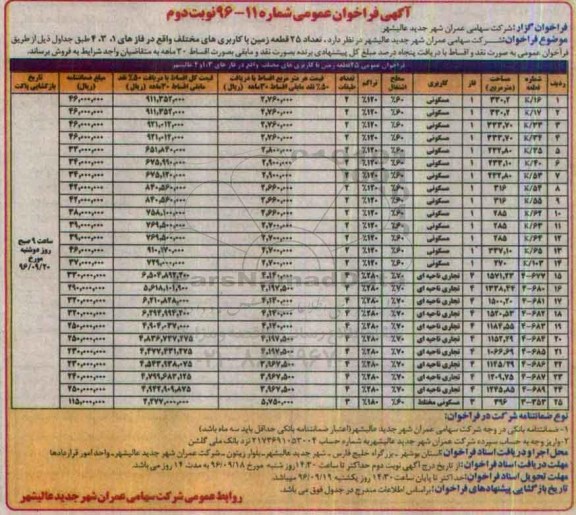 آگهی فراخوان عمومی شماره ۱۱-۹۶ نوبت دوم
فراخوان گزار: شرکت سهامی عمران شهر جدید عالیشهر
موضوع فراخوان: شرکت سهامی عمران شهر جدید عالیشهر در نظر دارد ، تعداد ۲۵ قطعه زمین با کاربری های مختلف واقع در فاز های ۱، ۳، ۴ طبق جداول ذیل از طریق
فراخوان عمومی به صورت نقد و اقساط با دریافت پنجاه درصد مبلغ کل پیشنهادی برنده بصورت نقد و مابقی بصورت اقساط ۳۰ ماهه به متقاضیان واجد شرایط به فروش برساند.
فراخوان عمومی ۲۵ قطعه زمین با کاربری های مختلف واقع در فازهای ۱،۳و۴ عالیشهر
ردیف شماره قطعه مساحت (مترمربع) فاز کاربری سطح اشتغال تراکم تعداد طبقات قیمت هر متر مربع اقساط با دریافت ۵۰٪ نقد مابقی اقساط ۳۰ماهه (ریال) قیمت کل اقساط با دریافت ۵۰٪ نقد مابقی اقساط ۳۰ماهه (ریال) مبلغ ضمانتنامه (ریال) تاریخ بازگشایی پاکت
۱ K/۱۶ ۳۳۰,۲ ۱ مسکونی ۶۰٪ ۱۲۰٪ ۲ ۲,۷۶۰,۰۰۰ ۹۱۱,۳۵۲,۰۰۰ ۴۶,۰۰۰,۰۰۰
۲ K/۱۷ ۳۳۰,۲ ۱ مسکونی ۶۰٪ ۱۲۰٪ ۲ ۲,۷۶۰,۰۰۰ ۹۱۱,۳۵۲,۰۰۰ ۴۶,۰۰۰,۰۰۰
۳ ۳۳۳,۷۰ ۱ مسکونی ۶۰٪ ۱۲۰٪ ۲ ۲,۷۶۰,۰۰۰ ۹۲۱,۰۱۲,۰۰۰ ۴۶,۰۰۰,۰۰۰
۴ ۳۳۳,۷۰ ۱ مسکونی ۶۰٪ ۱۲۰٪ ۲ ۲,۷۶۰,۰۰۰ ۹۲۱,۰۱۲,۰۰۰ ۴۶,۰۰۰,۰۰۰
۵ K/۳۵ ۲۳۲,۸۰ ۱ مسکونی ۶۰٪ ۱۲۰٪ ۲ ۲,۸۰۰,۰۰۰ ۶۵۱,۸۴۰,۰۰۰ ۳۳,۰۰۰,۰۰۰
۶ K/۴۰ ۲۳۳,۱۰ ۱ مسکونی ۶۰٪ ۱۲۰٪ ۲ ۲,۹۰۰,۰۰۰ ۶۷۵,۹۹۰,۰۰۰ ۳۴,۰۰۰,۰۰۰
۷ K/۵۳ ۲۳۲,۸۰ ۱ مسکونی ۶۰٪ ۱۲۰٪ ۲ ۲,۹۰۰,۰۰۰ ۶۷۵,۱۲۰,۰۰۰ ۳۴,۰۰۰,۰۰۰
۸ K/۵۴ ۳۱۶ ۱ مسکونی ۶۰٪ ۱۲۰٪ ۲ ۲,۶۶۰,۰۰۰ ۸۴۰,۵۶۰,۰۰۰ ۴۲,۰۰۰,۰۰۰
۹ K/۵۵ ۳۱۶ ۱ مسکونی ۶۰٪ ۱۲۰٪ ۲ ۲,۶۶۰,۰۰۰ ۸۴۰,۵۶۰,۰۰۰ ۴۲,۰۰۰,۰۰۰
۱۰ K/۶۲ ۲۸۵ ۱ مسکونی ۶۰٪ ۱۲۰٪ ۲ ۲,۶۶۰,۰۰۰ ۷۵۸,۱۰۰,۰۰۰ ۳۸,۰۰۰,۰۰۰
۱۱ K/۶۳ ۲۸۵ ۱ مسکونی ۶۰٪ ۱۲۰٪ ۲ ۲,۷۰۰,۰۰۰ ۷۶۹,۵۰۰,۰۰۰ ۳۹,۰۰۰,۰۰۰
۱۲ K/۶۴ ۲۸۵ ۱ مسکونی ۶۰٪ ۱۲۰٪ ۲ ۲,۷۰۰,۰۰۰ ۷۶۹,۵۰۰,۰۰۰ ۳۹,۰۰۰,۰۰۰
۱۳ K/۶۵ ۳۳۷,۱۰ ۱ مسکونی ۶۰٪ ۱۲۰٪ ۲ ۲,۷۰۰,۰۰۰ ۹۱۰,۱۷۰,۰۰۰ ۴۶,۰۰۰,۰۰۰
۱۴ K/۱۰۳ ۲۷۰ ۱ مسکونی ۶۰٪ ۱۲۰٪ ۲ ۲,۷۰۰,۰۰۰ ۷۲۹,۰۰۰,۰۰۰ ۳۷,۰۰۰,۰۰۰
۱۵ ۴-۶۷۷ ۱۵۷۱,۲۳ ۴ تجاری ناحیه ای ۷۰٪ ۲۸۰٪ ۴ ۴,۱۴۰,۰۰۰ ۶,۵۰۴,۸۹۲,۲۰۰ ۳۳۰,۰۰۰,۰۰۰
۱۶ ۴-۶۸۰ ۱۳۳۸,۴۴ ۴ تجاری ناحیه ای ۷۰٪ ۲۸۰٪ ۴ ۴,۱۹۷,۵۰۰ ۵,۶۱۸,۱۰۱,۹۰۰ ۲۹۰,۰۰۰,۰۰۰
۱۷ ۴-۶۸۱ ۱۵۰۰,۲۰ ۴ تجاری ناحیه ای ۷۰٪ ۲۸۰٪ ۴ ۴,۱۴۰,۰۰۰ ۶,۲۱۰,۸۲۸,۰۰۰ ۳۲۰,۰۰۰,۰۰۰
۱۸ ۴-۶۸۲ ۱۵۲۰,۵۳ ۴ تجاری ناحیه ای ۷۰٪ ۲۸۰٪ ۴ ۴,۱۴۰,۰۰۰ ۶,۲۹۴,۹۹۴,۲۰۰ ۳۲۰,۰۰۰,۰۰۰
۱۹ ۴-۶۸۳ ۱۱۸۴,۵۵ ۴ تجاری ناحیه ای ۷۰٪ ۲۸۰٪ ۴ ۴,۱۴۰,۰۰۰ ۴,۹۰۴,۰۳۷,۰۰۰ ۲۵۰,۰۰۰,۰۰۰
۲۰ ۴-۶۸۴ ۱۱۵۲,۲۹ ۴ تجاری ناحیه ای ۷۰٪ ۲۸۰٪ ۴ ۴,۱۹۷,۵۰۰ ۴,۸۳۶,۷۳۷,۲۷۵ ۲۵۰,۰۰۰,۰۰۰
۲۱ ۴-۶۸۵ ۱۰۶۶,۶۹ ۴ تجاری ناحیه ای ۷۰٪ ۲۸۰٪ ۴ ۴,۱۹۷,۵۰۰ ۴,۴۷۷,۴۳۱,۲۷۵ ۲۳۰,۰۰۰,۰۰۰
۲۲ ۴-۶۸۶ ۱۱۴۵,۲۹ ۴ تجاری ناحیه ای ۷۰٪ ۲۸۰٪ ۴ ۳,۹۶۷,۵۰۰ ۴,۵۴۳,۹۳۸,۰۷۵ ۲۳۰,۰۰۰,۰۰۰
۲۳ ۴-۶۸۷ ۱۲۰۹,۷۵ ۴ تجاری ناحیه ای ۷۰٪ ۲۸۰٪ ۴ ۳,۹۶۷,۵۰۰ ۴,۷۹۹,۶۸۳,۱۲۵ ۲۴۰,۰۰۰,۰۰۰
۲۴ ۴-۶۸۹ ۱۲۴۵,۸۵ ۴ تجاری ناحیه ای ۷۰٪ ۲۸۰٪ ۴ ۳,۹۶۷,۵۰۰ ۴,۹۴۲,۹۰۹,۸۷۵ ۲۵۰,۰۰۰,۰۰۰
۲۵ ۳-۳۵۳ ۳۹۶ ۳ مسکونی مختلط ۶۰٪ ۱۸۰٪ ۳ ۵,۷۵۰,۰۰۰ ۲,۲۷۷,۰۰۰,۰۰۰ ۱۱۵,۰۰۰,۰۰۰
ساعت ۹ صبح
روز دوشنبه
مورخ
۹۶/۰۹/۲۰
نوع ضمانتنامه شرکت در فراخوان:
۱- ضمانتنامه بانکی در وجه شرکت سهامی عمران شهر جدید عالیشهر (اعتبار ضمانتنامه بانکی حداقل باید سه ماه باشد)
۲-واریز وجه به حساب سپرده شرکت عمران شهر جدید عالیشهر به شماره حساب ۲۱۷۳۶۹۱۰۵۳۰۰۴ نزد بانک ملی گلشن
محل اجرا و دریافت اسناد فراخوان: استان بوشهر ـ بزرگراه خلیج فارس ـ شهر جدید عالیشهر ـ بلوار زیتون ـ شرکت عمران شهر جدید عالیشهر ـ واحد امور قراردادها
مهلت دریافت اسناد فراخوان: از تاریخ درج آگهی نوبت دوم حداکثر تا ساعت ۱۴:۳۰ روز شنبه مورخ ۹۶/۰۹/۱۸ به مدت ۱۴ روز می باشد.
مهلت تحویل اسناد فراخوان: حداکثر تا پایان ساعت ۱۴:۳۰ روز یکشنبه ۹۶/۰۹/۱۹ میباشد.
تاریخ بازگشایی پیشنهادهای فراخوان: براساس اطلاعات مندرج در جدول فوق می باشد.
روابط عمومی شرکت سهامی عمران شهر جدید عالیشهر